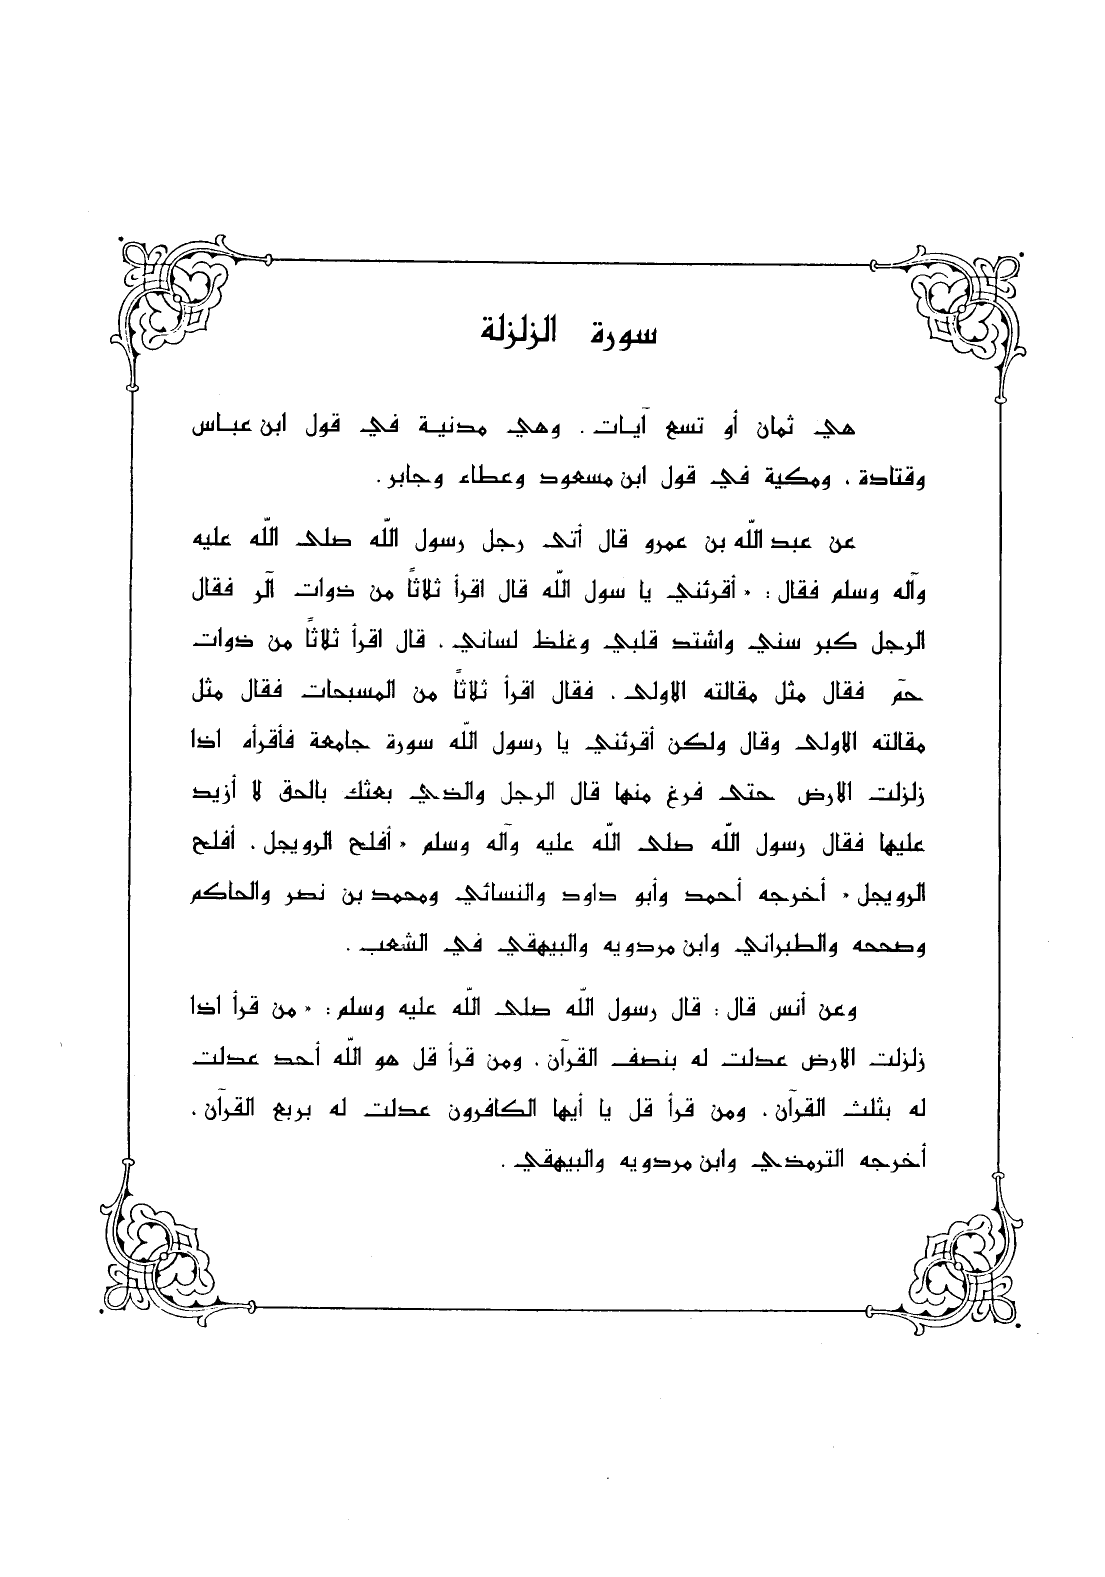 سورة الزلزلة
هي ثمان أو تسع آيات . وهي مدنية في قول ابن عباس
وقتادة ، ومكية في قول ابن مسعود وعطاء وجابر .
عن عبد اللّه بن عمرو قال أتى رجل رسول اللّه صلى اللّه عليه
وآله وسلم فقال : « أقرئني يا سول اللّه قال اقرأ ثلاثاً من ذوات آلر فقال
الرجل كبر سني واشتد قلبي وغلظ لساني ، قال اقرأ ثلاثاً من ذوات
حمَ فقال مثل مقالته الاولى ، فقال اقرأ ثلاثاً من المسبحات فقال مثل
مقالته الاولى وقال ولكن أقرئني يا رسول اللّه سورة جامعة فأقرأه اذا
زلزلت الارض حتى فرغ منها قال الرجل والذي بعثك بالحق لا أزيد
عليها فقال رسول اللّه صلى اللّه عليه وآله وسلم « أفلح الرويجل ، أفلح
الرويجل » أخرجه أحمد وأبو داود والنسائي ومحمد بن نصر والحاكم
وصححه والطبراني وابن مردويه والبيهقي في الشعب .
وعن أنس قال : قال رسول اللّه صلى اللّه عليه وسلم : « من قرأ اذا
زلزلت الارض عدلت له بنصف القرآن ، ومن قرأ قل هو اللّه أحد عدلت
له بثلث القرآن ، ومن قرأ قل يا أيها الكافرون عدلت له بربع القرآن ،
أخرجه الترمذي وابن مردويه والبيهقي .